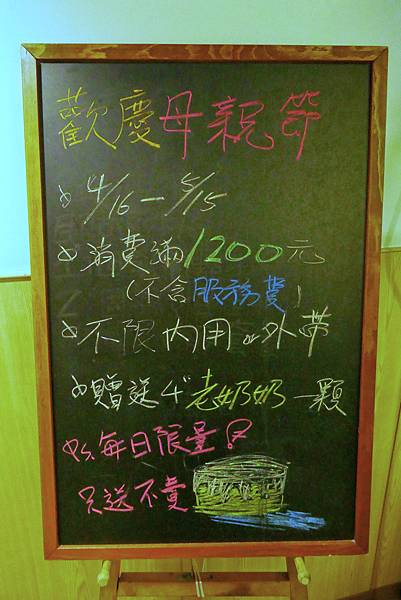 歡慶母親節
4/16-5/15
消費滿1200元
(不含服務費)
不限內用or外帶
贈送4"老奶奶一顆
ps.每日限量!
只送不賣